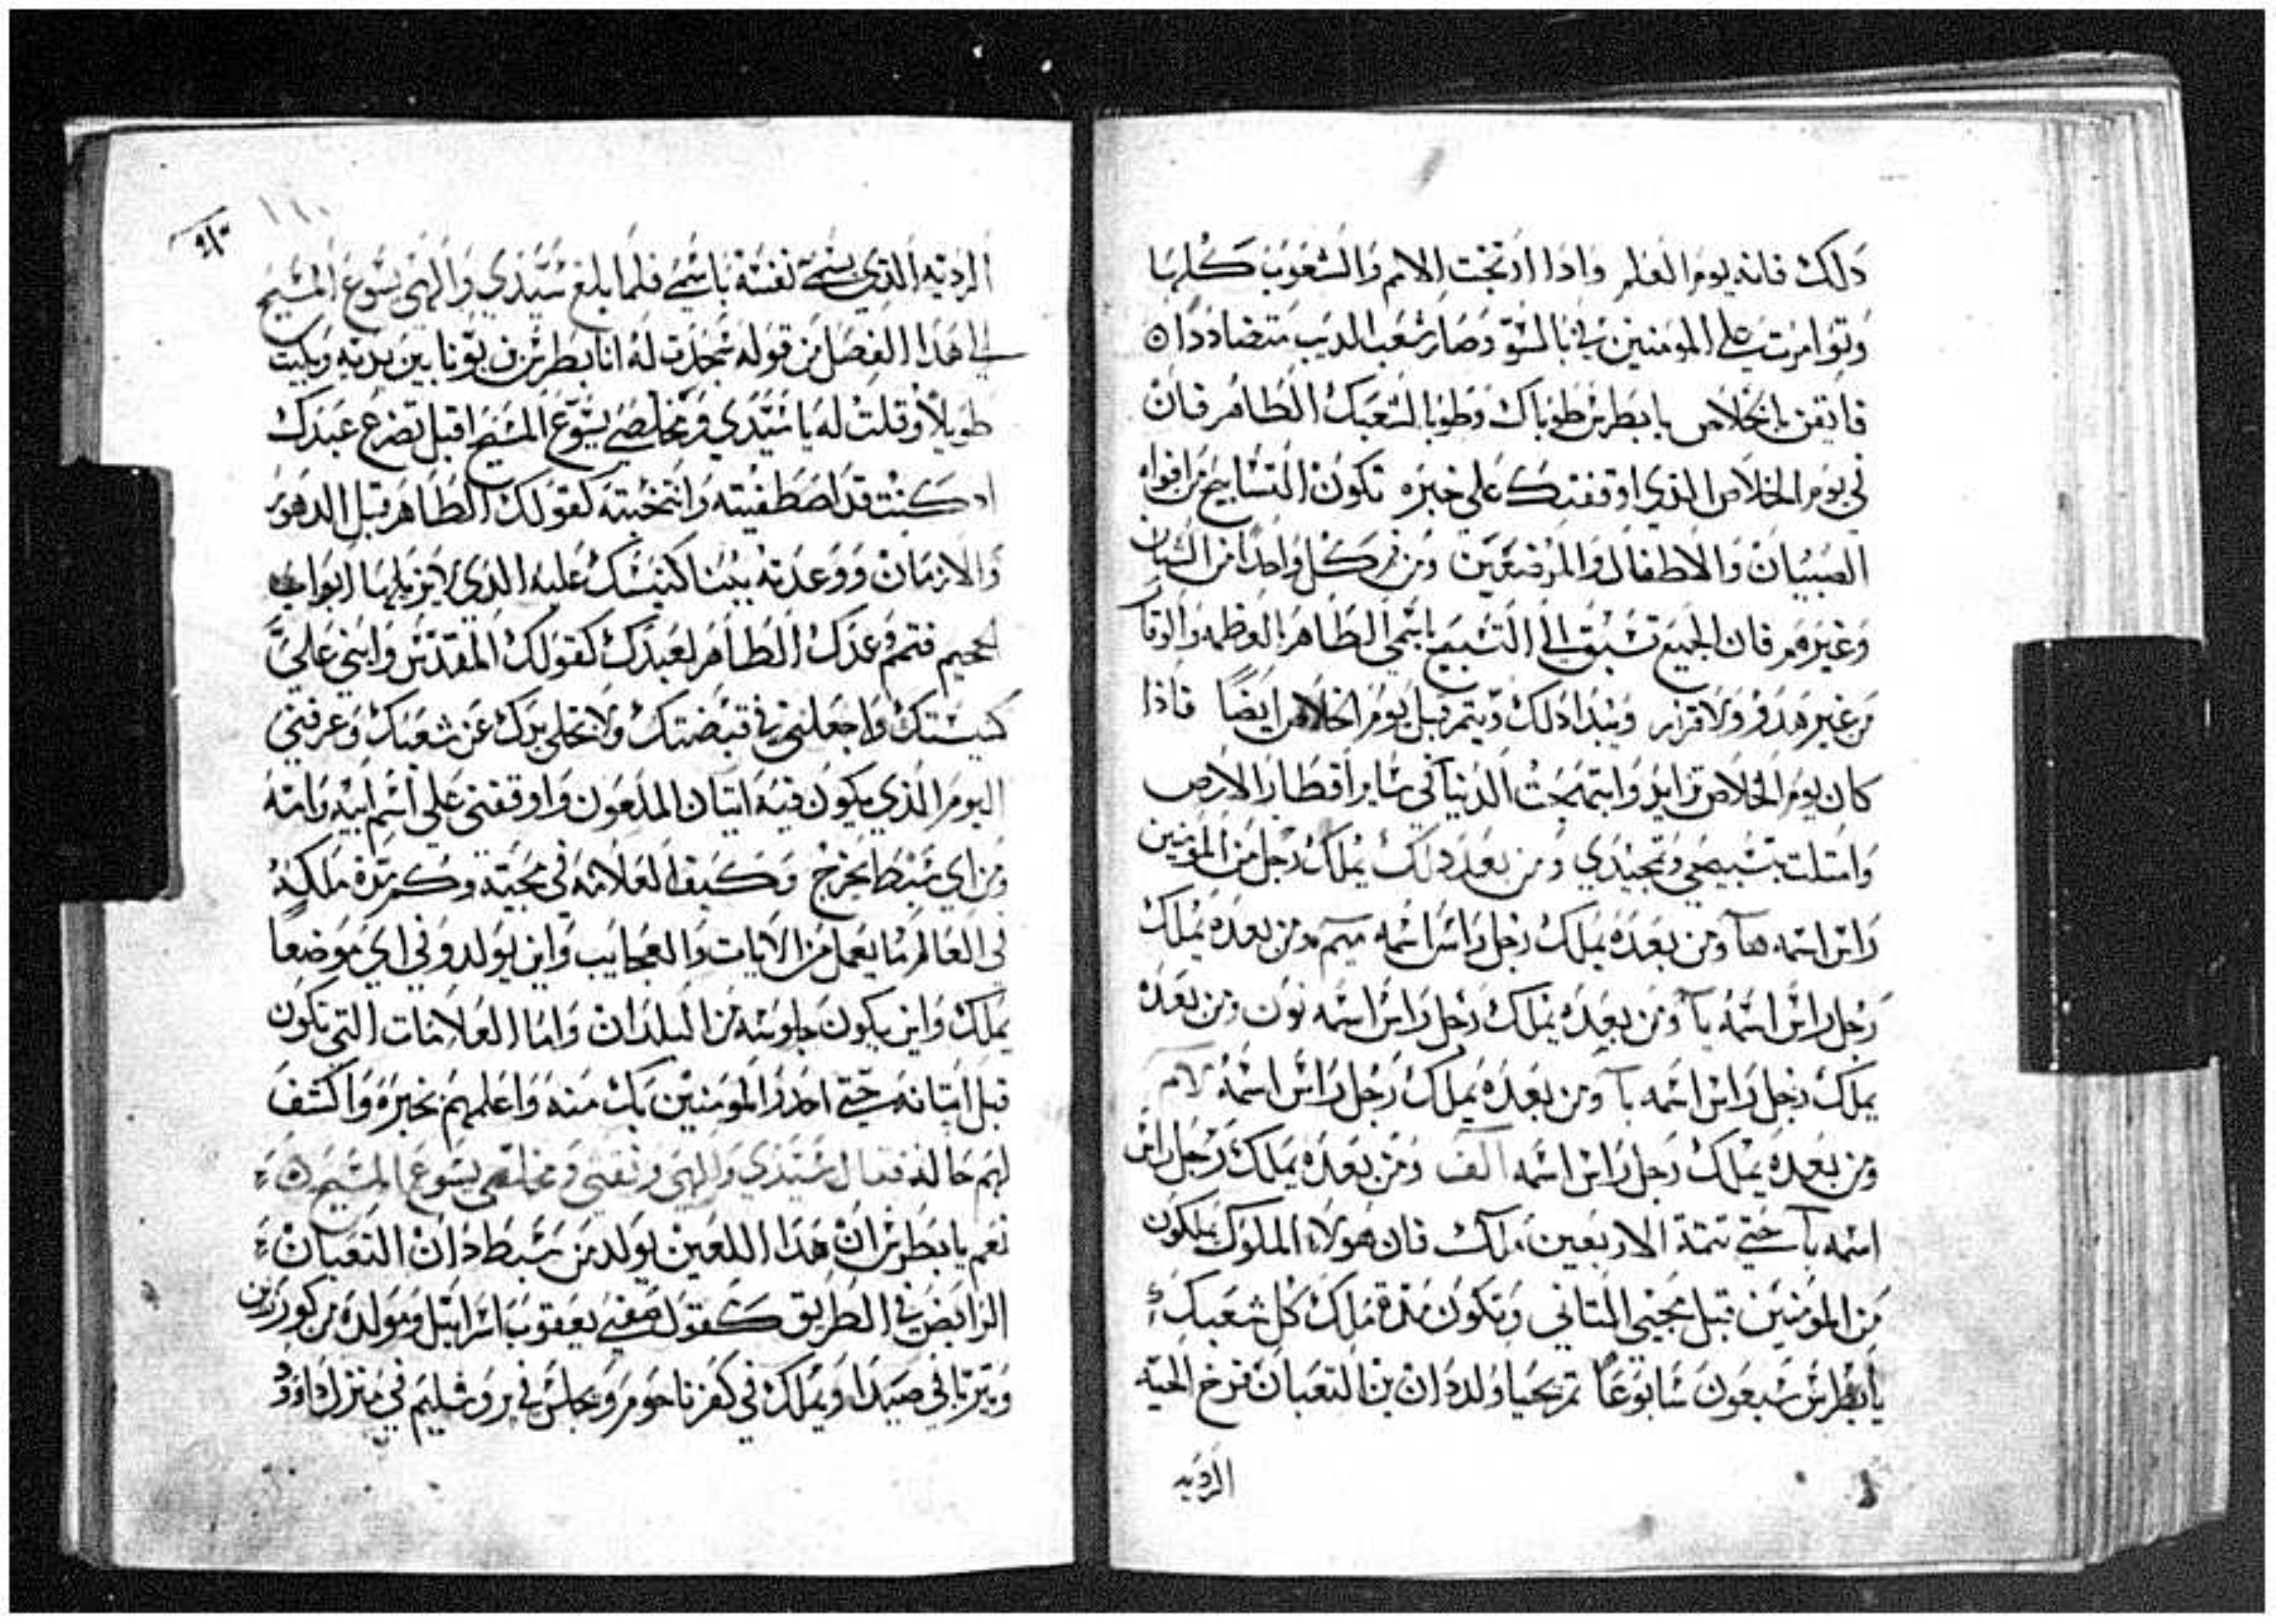 دلك فانه يوم الظلم وادا ارتجت الامم والشعوب كلها
وتوامرت على المومنين بي بالسو وصار شعب الديب متضاددا ه
فايقن بالخلاص يا بطرس طوباك وطوبا لشعبك الطاهر فان
في يوم الخلاص الذي اوقفتك على خبره تكون التسابيح من افواه
الصبيان والاطفال والمرضعين ومن كل واحدا من الشبان
وغيرهم فان الجميع تسبق الى التسبيح باسمي الطاهر بالعظمه والوقا
من غير هدو ولا قرار ويبدا دلك ويتم قبل يوم الخلاص ايضا فاذا
كان يوم الخلاص تزايد وابتهجت الدنيا في ساير اقطار الارض
وامتلت بتسبيحي وتمجيدي ومن بعد دلك يملك رجل من المومنين
راس اسمه ها ومن بعده يملك رجل راس اسمه ميم ومن بعده يملك
رجل راس اسمه يا ومن بعده يملك رجل راس اسمه نون ومن بعده
يملك رجل راس اسمه با ومن بعده يملك رجل راس اسمه لام
ومن بعده يملك رجل راس اسمه الف ومن بعده يملك رجل راس
اسمه با حتى تتمة الاربعين ملك فان هولاء الملوك يملكون
من المومنين قبل مجيي التاني وتكون مدة ملك كل شعبك
يا بطرس سبعون سابوعا تم يحيا ولد دان بن التعبان فرخ الحيه
الرديه
١١٠
الرديه الذي يسمى نفسه باسمي فلما بلغ سيدي والهي يسوع المسيح
الى هذا الفصل من قوله سجدت له انا بطرس بن يونا بين يديه وبكيت
طويلا وقلت له يا سيدي ومخلصي يسوع المسيح اقبل تضرع عبدك
اد كنت قد اصطفيته وانتخبته كقولك الطاهر قبل الدهور
والازمان ووعدته ببنا كنيستك عليه الذي لا يزيلها ابواب
الجحيم فتمم وعدك الطاهر لعبدك كقولك المقدس وابني علي
كنيستك واجعلني في قبضتك ولا تخلي يدك عن شعبك وعرفني
اليوم الذي يكون فيه اتيان الملعون واوقفني على اسم ابيه وامه
ومن اي سبط يخرج وكيف العلامه في مجيته وكم مدة ملكه
في العالم ما يعمل من الايات والعجايب واين يولد وفي اي موضعا
يملك واين يكون جلوسه من البلدان واما العلامات التي تكون
قبل اتيانه حتى احذر المومنين بك منه واعلمهم بخبره واكشف
لهم حاله فقال سيدي والهي وثقتي ومخلصي يسوع المسيح ه
نعم يا بطرس ان هذا اللعين يولد من سبط دان التعبان
الرابض في الطريق كقول صفيي يعقوب اسرايل ومولده من كورزين
ويتربا في صيدا ويملك في كفرناحوم ويجلس في يروشليم في منزل داوود